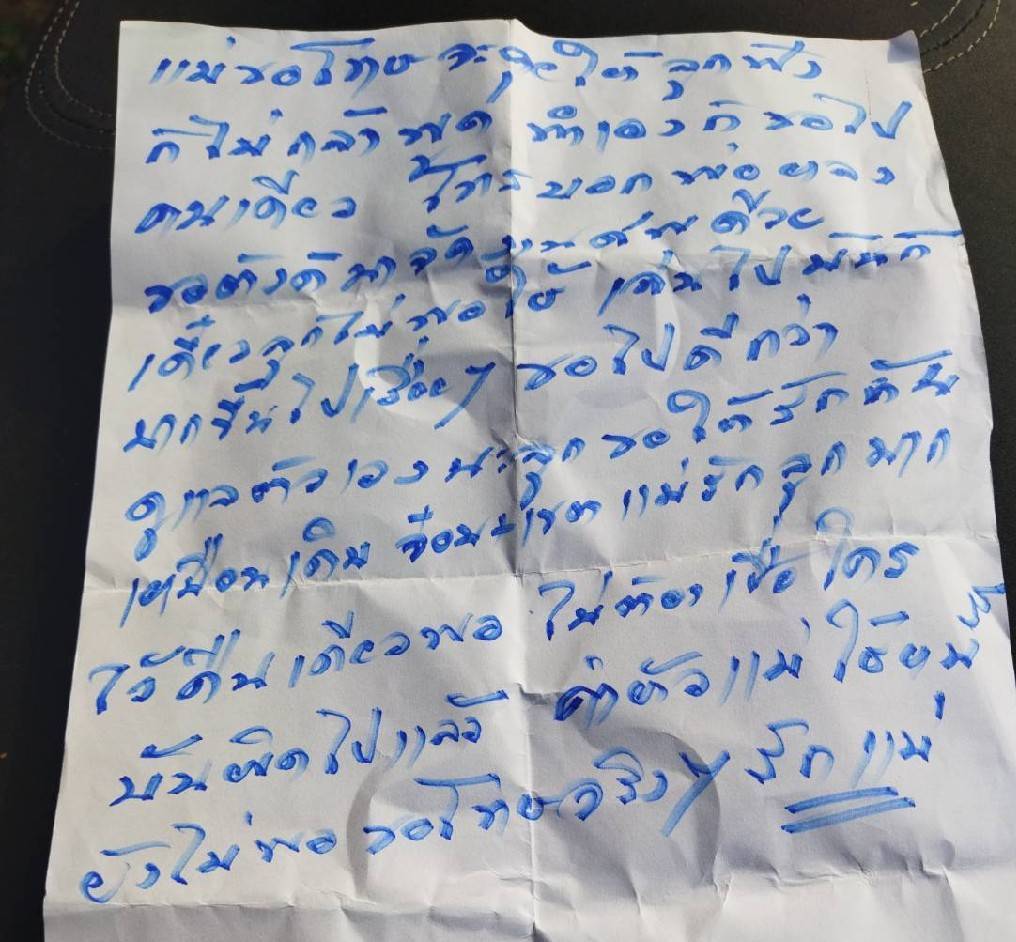 แม่ขอโทษจะพูดให้ลูกฟัง
ก็ไม่กล้าพูด ทำเองก็ขอไป
คนเดียว โทรบอกพ่อ
ขอตังค์มาจัดงานศพด้วย
เดี๋ยวลูกไม่พอใช้ ไปมันก็
มากขึ้นไปเรื่อยๆ ขอไปดีกว่า
ดูแลตัวเองนะลูก ขอให้รักกัน
เหมือนเดิม แม่รักลูกมาก
ไว้คืนเดียวพอ ไม่ต้อง ใคร
มันผิดไปแล้ว ค่าตัวแม่ใช้หนี้
ยังไม่พอ ขอโทษจริงๆ รัก แม่